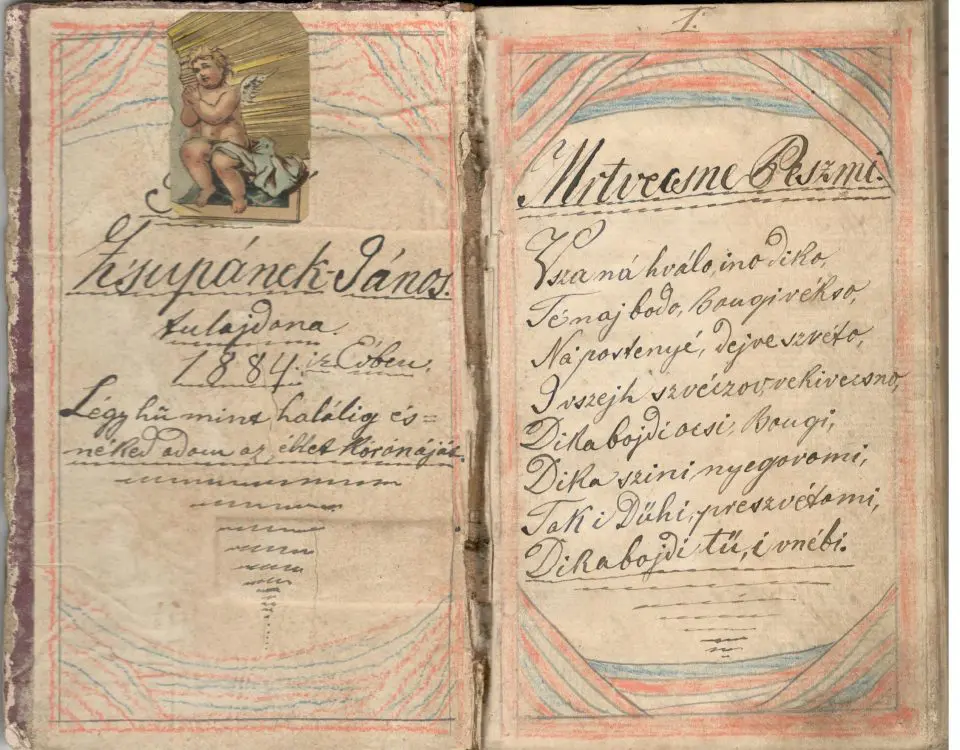 Zsupánek János.
tulajdona.
1884. iz Évben.
Légy hű mint halálig és=
néked adom az éltet koronáját.
1.
Mrtvecsne Peszmi.
Vsza ná hválo, ino diko,
Té naj bodo, Bougi vékso,
Na postenyé, dejve szvéto,
I vszejh szvéczov, vekivecsno,
Dika bojdi ocsi, Bougi,
Dika szini, nyegovomi,
Tak i Dühi, preszvétomi,
Dika bojdi tü, i vnébi.